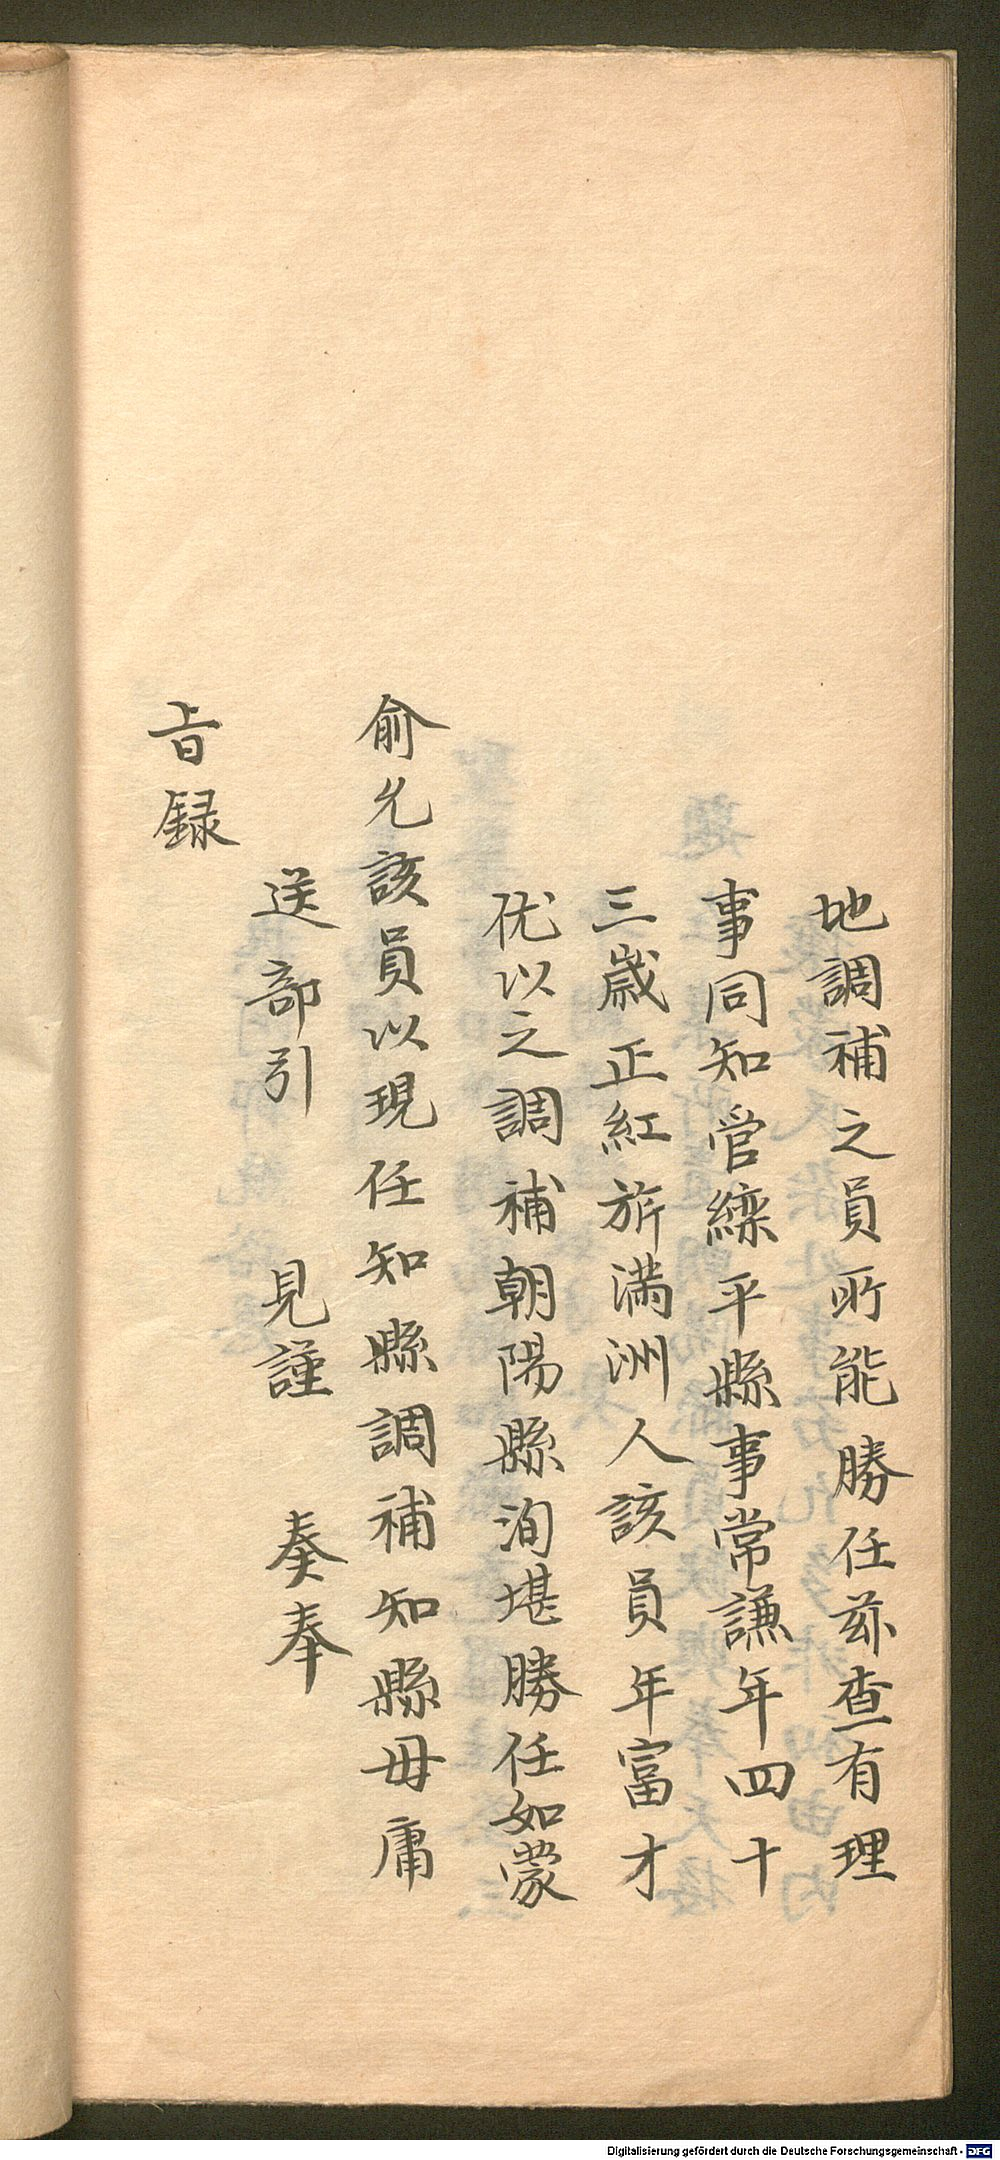 地調補之員所能勝任茲查有理
事同知管灤平縣事常謙年四十
三歲正紅旂滿洲人該員年富才
优以之調補朝陽縣洵堪勝任如蒙
俞允該員以現任知縣調補知縣毋庸
送部引 見謹 奏奉
旨録
Digitalisierung gefördert durch die Deutsche Forschungsgemeinschaft - DFG